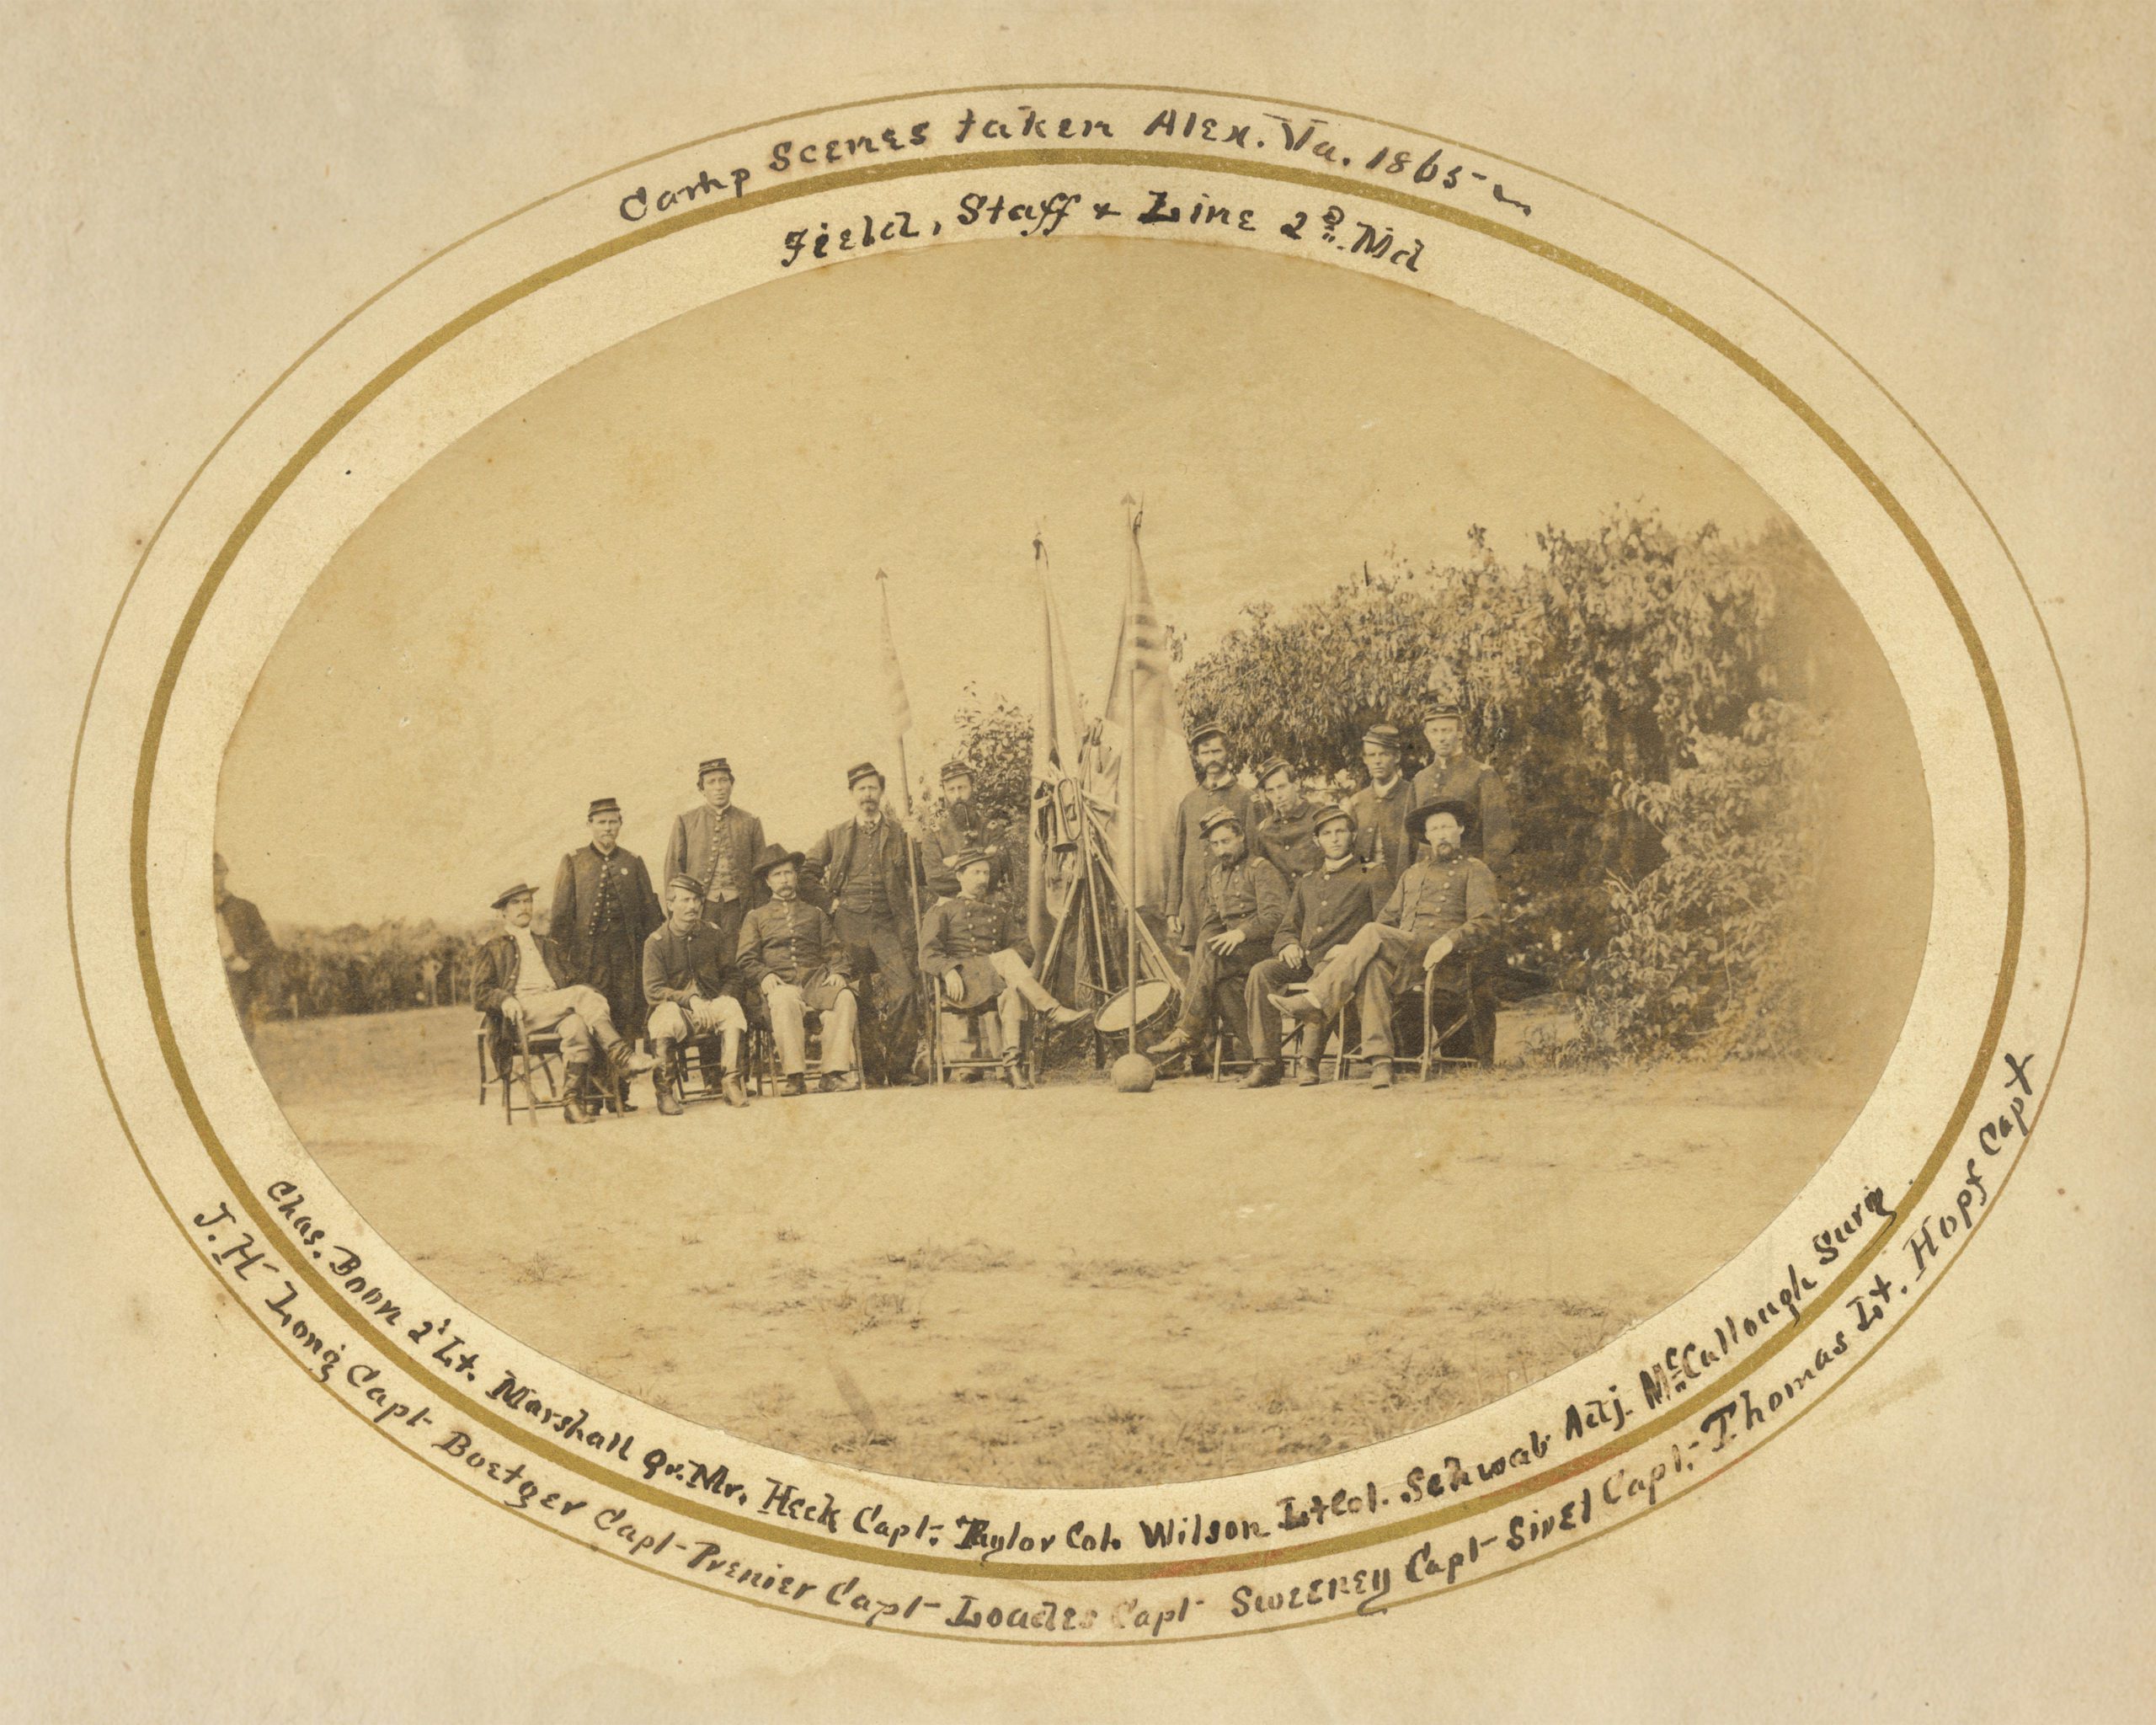 Camp Scenes taken Alex. Va. 1865
Field, Staff & Line 2D. Md
Chas. Boon 2' Lt. Marshall Qr. Mr. Heck Capt. Taylor Col. Wilson Lt Col. Schwab Adj. McCullough Surg
J. H Long Capt- Boetger Capt- Prenier Capt- Loades Capt- Sweeney Capt- Sivel Capt.- Thomas Lt. Hopf Capt